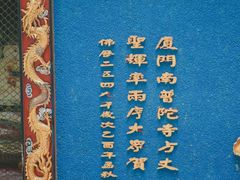 厦門南普陀寺方丈
聖輝率兩序大眾賀
佛曆二五四九年歲次乙酉年孟秋